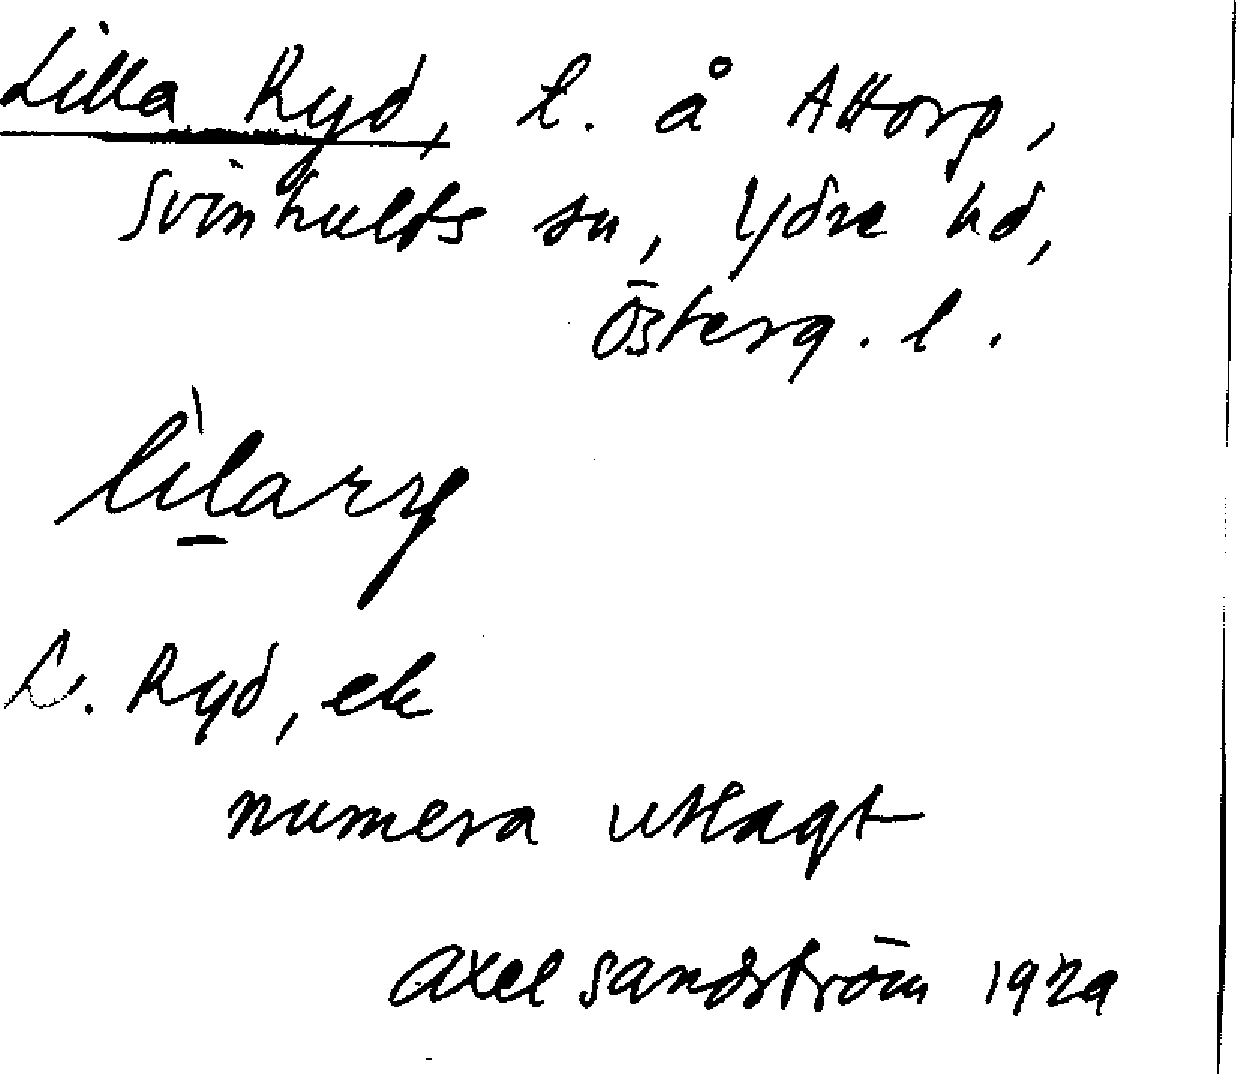 Lilla Ryd, l. å Attorp,
Svinhults sn, Ydre hd,
Österg. l.
lìlary
L. Ryd, ek
numera utlagt
Axel Sandström 1929